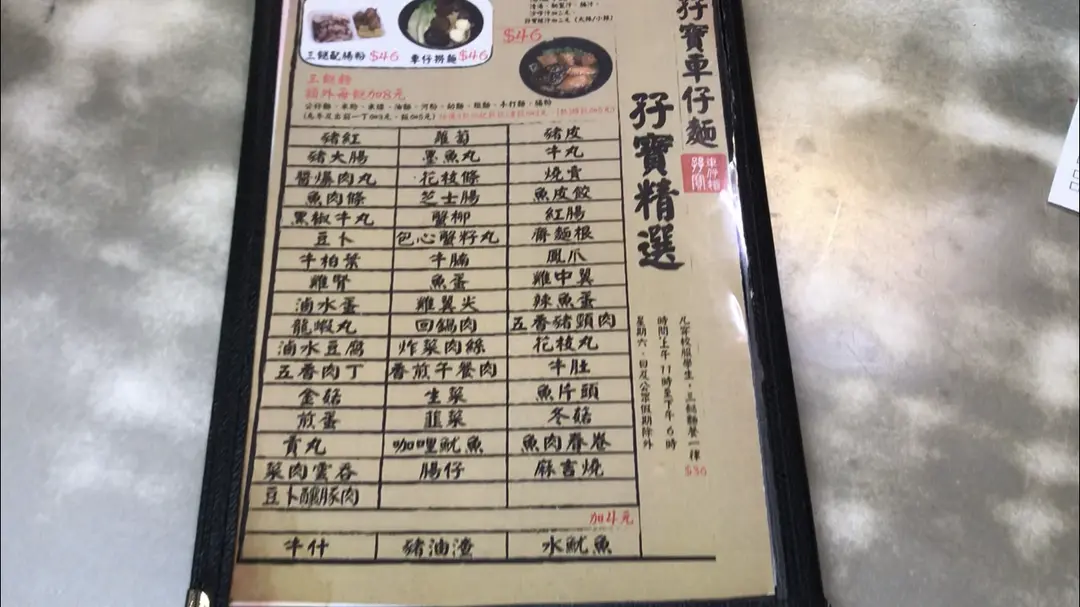 孖寶車仔麵
車仔麵
孖寶精選
三餸配腸粉 $46
車仔撈麵 $46
$46
三餸麵
額外每餸加8元
豬紅 蘿蔔 豬皮
豬大腸 墨魚丸 牛丸
醬爆肉丸 花枝條 燒賣
魚肉條 芝士腸 魚皮餃
黑椒牛丸 蟹柳 紅腸
豆卜 包心蟹籽丸 齋麵根
牛柏葉 牛腩 鳳爪
雞腎 魚蛋 雞中翼
滷水蛋 雞翼尖 辣魚蛋
龍蝦丸 回鍋肉 五香豬頸肉
滷水豆腐 炸菜肉絲 花枝丸
五香肉丁 香煎午餐肉 牛肚
金菇 生菜 魚片頭
煎蛋 韮菜 冬菇
貢丸 咖哩魷魚 魚肉春卷
菜肉雲吞 腸仔 麻吉燒
豆卜釀豚肉
加4元
牛什 豬油渣 水魷魚
凡穿校服學生，三餸麵餐一律
$36
時間：上午11時至下午6時
星期六、日及公眾假期除外